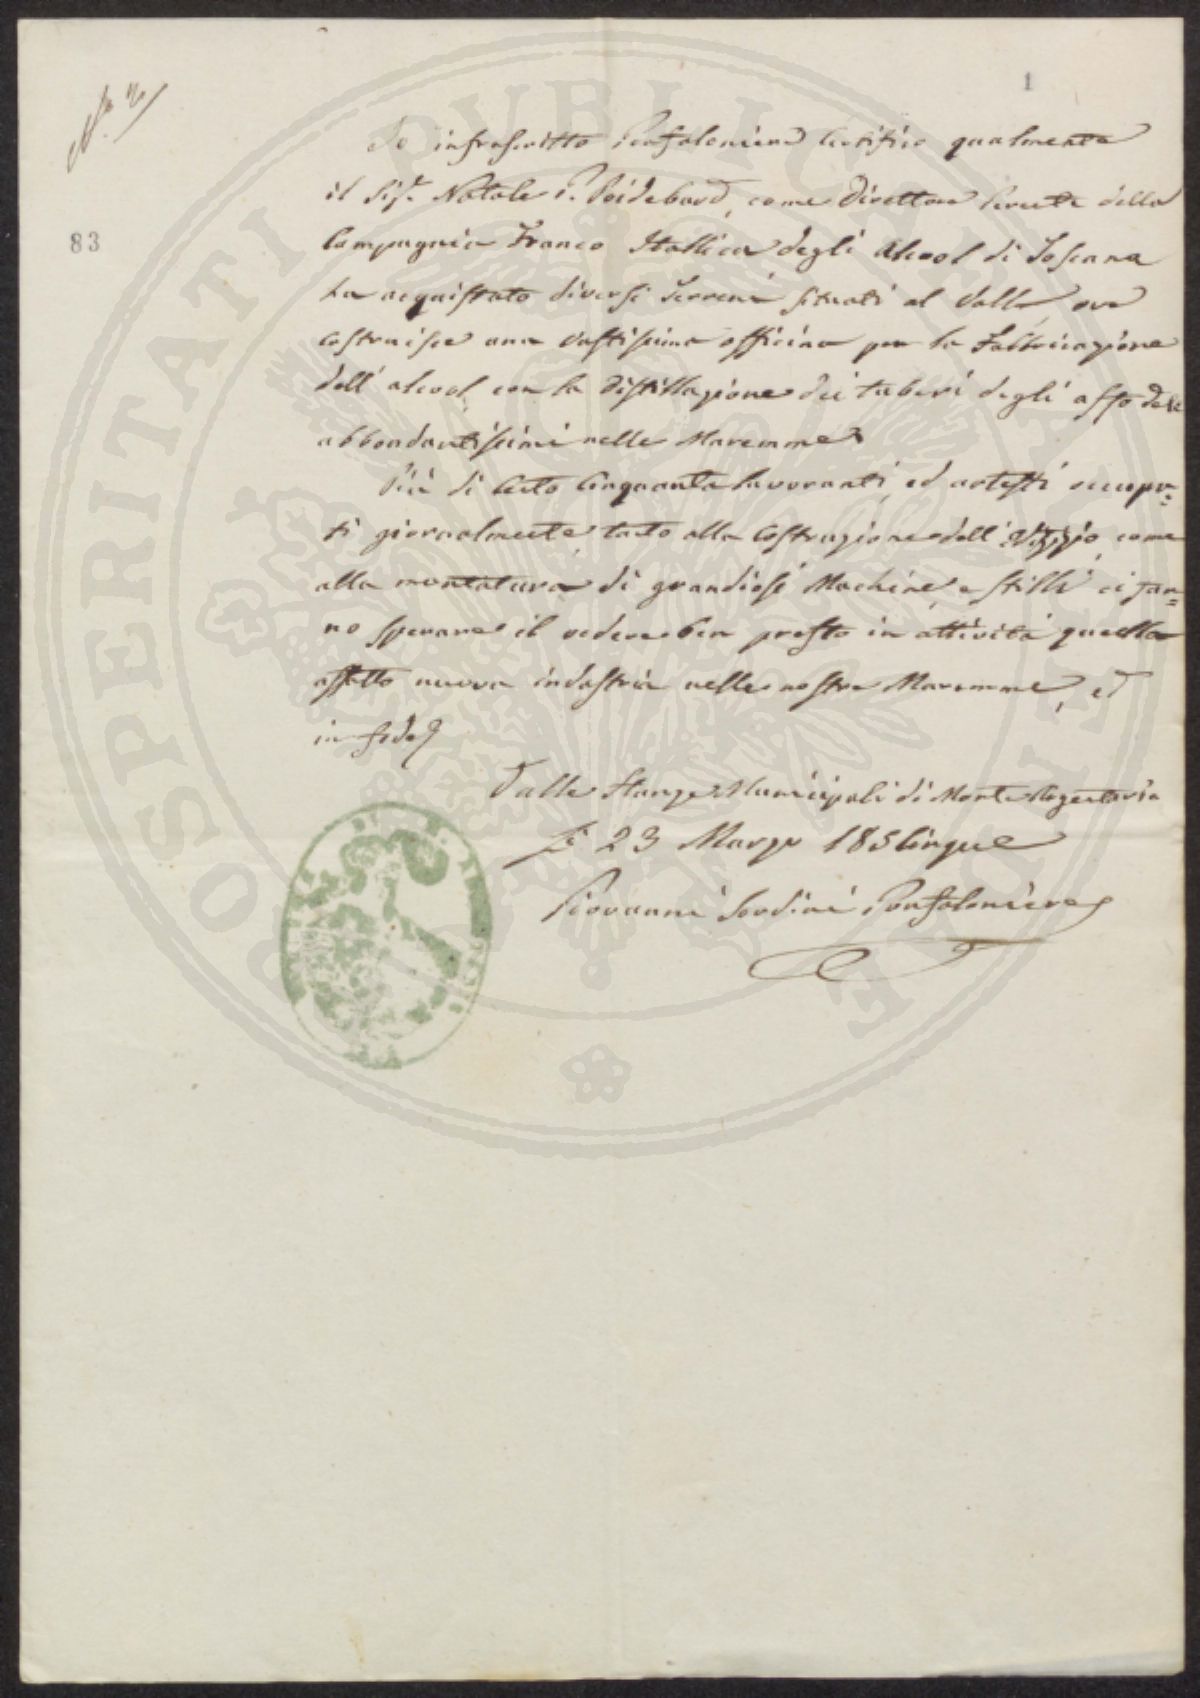 1
83
Io infrascritto Gonfaloniere Certifico qualmente
il Sig.r Natale P. Poidebard, come Direttore Gerente della
Compagnia Franco Itallica degli Alcool di Toscana
ha acquistato diversi Terreni situati al Valle, ove
Costruisce una vastissima officina per la Fabbricazione
dell' alcool con la Distillazione dei tuberi degli asfodeli
abbondantissimi nelle Maremme
Più di Cento Cinquanta lavoranti, ed artisti occupa=
ti giornalmente tanto alla Costruzione dell' come
alla montatura di grandiosi Machine, e stilli ci fan=
no sperare il vedere ben presto in attività quella
affatto nuova industria nelle nostre Maremme, ed
in fede
Dalle Stanze Municipali di Monte Argentario
Li 23 Marzo 185Cinque
Giovanni Sordini Gonfaloniere
PROSPERITATI PUBLICAE